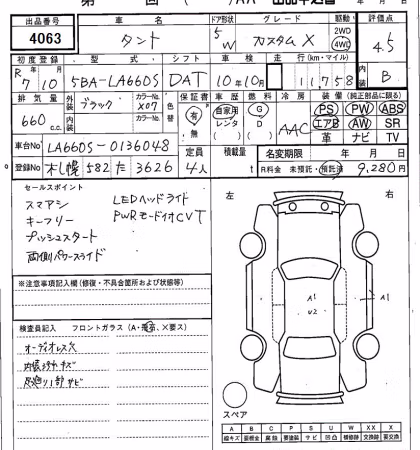 出品番号 車名 ドア形状 グレード 駆動 評価点
4063 タント 5W カスタムX 2WD 4WD 4.5
初度登録 型式 シフト 車検 走行(km・マイル) 内装
R7/10 5BA-LA660S DAT 10年10月 11,758 B
排気量 外装 ブラック カラーNo. X07 色替 保証書 車歴 燃料 冷房 装備(純正部品に限る)
660cc 内装 カラーNo. 有・無 自家用 レンタ G D AAC PS PW ABS
エアB AW SR
革 ナビ TV
車台No LA660S-0136048 定員 積載量 名変期限 年 月 日
登録No 札幌 582 た 3626 4人 t R料金 未預託・預託済 9,280円
セールスポイント
スマアシ LEDヘッドライト
キーフリー PWRモード付CVT
プッシュスタート
両側パワースライド
左 右
※注意事項記入欄(修復・不具合箇所および状態等)
検査員記入 フロントガラス(A・飛石、×要ス)
オーディオレス穴
内張コゲ キズ
足廻り1部サビ
A1
U2
A1
スペア
A B C P S U W X XX ×
線キズ 要板金 腐蝕 要塗装 サビ 凹凸 補修跡 要交換